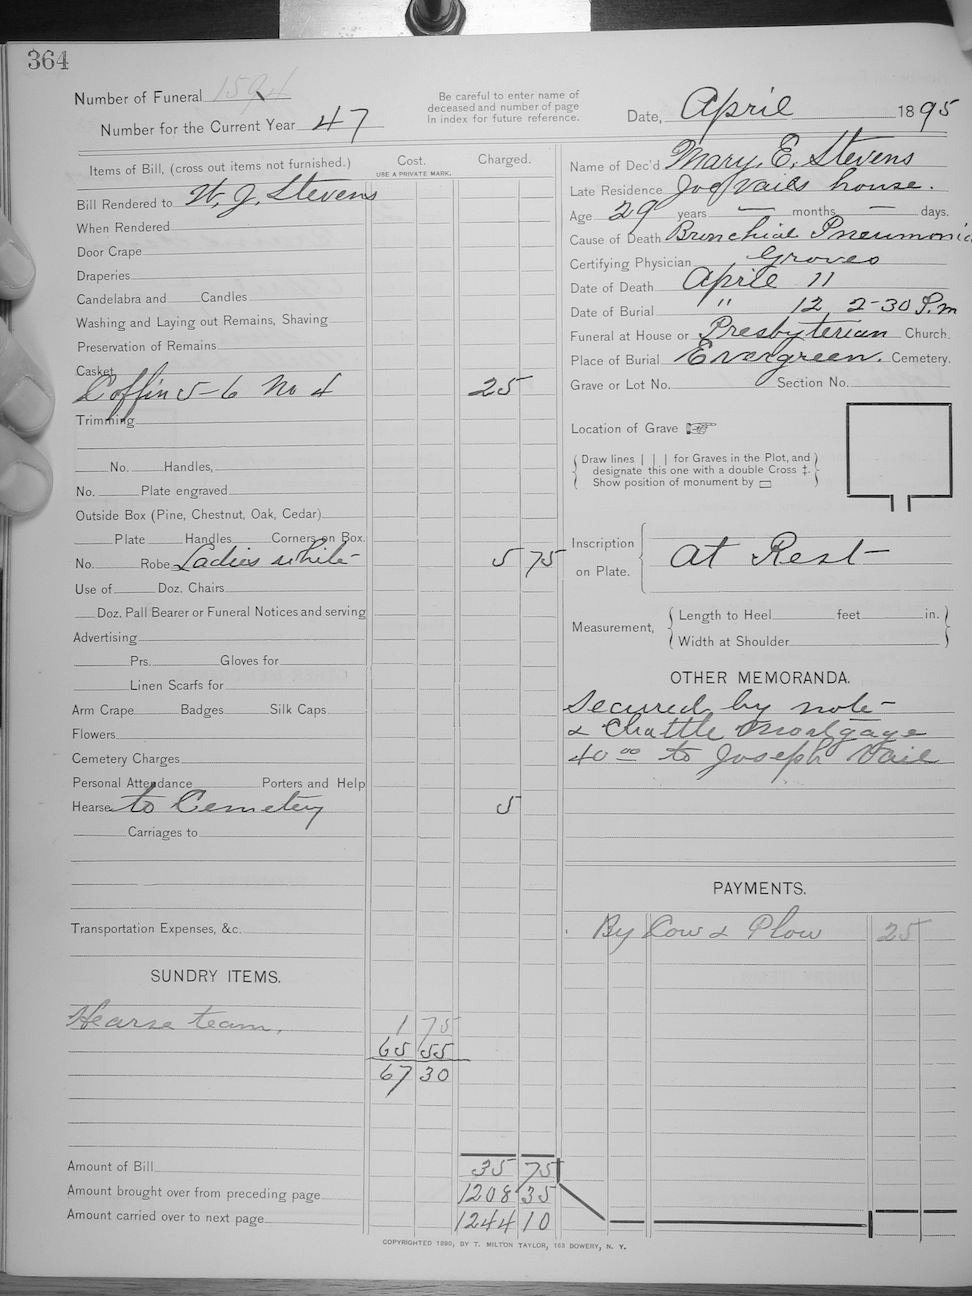 364
Number of Funeral 1594
Number for the Current Year 47
Be careful to enter name of
deceased and number of page
In index for future reference.
Date, April 1895
Items of Bill, (cross out items not furnished.) Cost. Charged.
USE A PRIVATE MARK.
Bill Rendered to W. J. Stevens
When Rendered
Door Crape
Draperies
Candelabra and Candles
Washing and Laying out Remains, Shaving
Preservation of Remains
Casket
Coffin 5-6 No 4 25
Trimming
No. Handles,
No. Plate engraved
Outside Box (Pine, Chestnut, Oak, Cedar)
Plate Handles Corners on Box.
No. Robe Ladies white 5 75
Use of Doz. Chairs
Doz. Pall Bearer or Funeral Notices and serving
Advertising
Prs. Gloves for
Linen Scarfs for
Arm Crape Badges Silk Caps
Flowers
Cemetery Charges
Personal Attendance Porters and Help
Hearse to Cemetery 5
Carriages to
Transportation Expenses, &c.
SUNDRY ITEMS.
Hearse team, 1 75
65 55
67 30
Amount of Bill 35 75
Amount brought over from preceding page 1208 35
Amount carried over to next page 1244 10
Name of Dec'd Mary E. Stevens
Late Residence Jos Vails house.
Age 29 years — months — days.
Cause of Death Bronchial Pneumonia
Certifying Physician Groves
Date of Death April 11
Date of Burial " 12, 2-30 P.m
Funeral at House or Presbyterian Church.
Place of Burial Evergreen. Cemetery.
Grave or Lot No. Section No.
Location of Grave
Draw lines | | | for Graves in the Plot, and
designate this one with a double Cross ‡.
Show position of monument by ▭
Inscription
on Plate. At Rest
Measurement, Length to Heel feet in.
Width at Shoulder
OTHER MEMORANDA.
Secured by note
& Chattle Mortgage
40 00 to Joseph Vail
PAYMENTS.
By Cow & Plow 25
COPYRIGHTED 1890, BY T. MILTON TAYLOR, 163 BOWERY, N. Y.